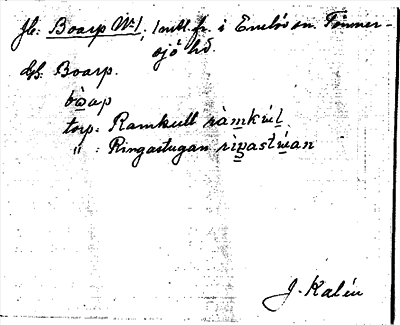 fb: Boarp Nr 1, 1 mtl. fr. i Emlös sn. Tönner-
sjö hd.
Gd. Boarp.
bòap
torp. Ramkull ràmkúl
" : Ringastugan rìŋastúan
J. Kalén